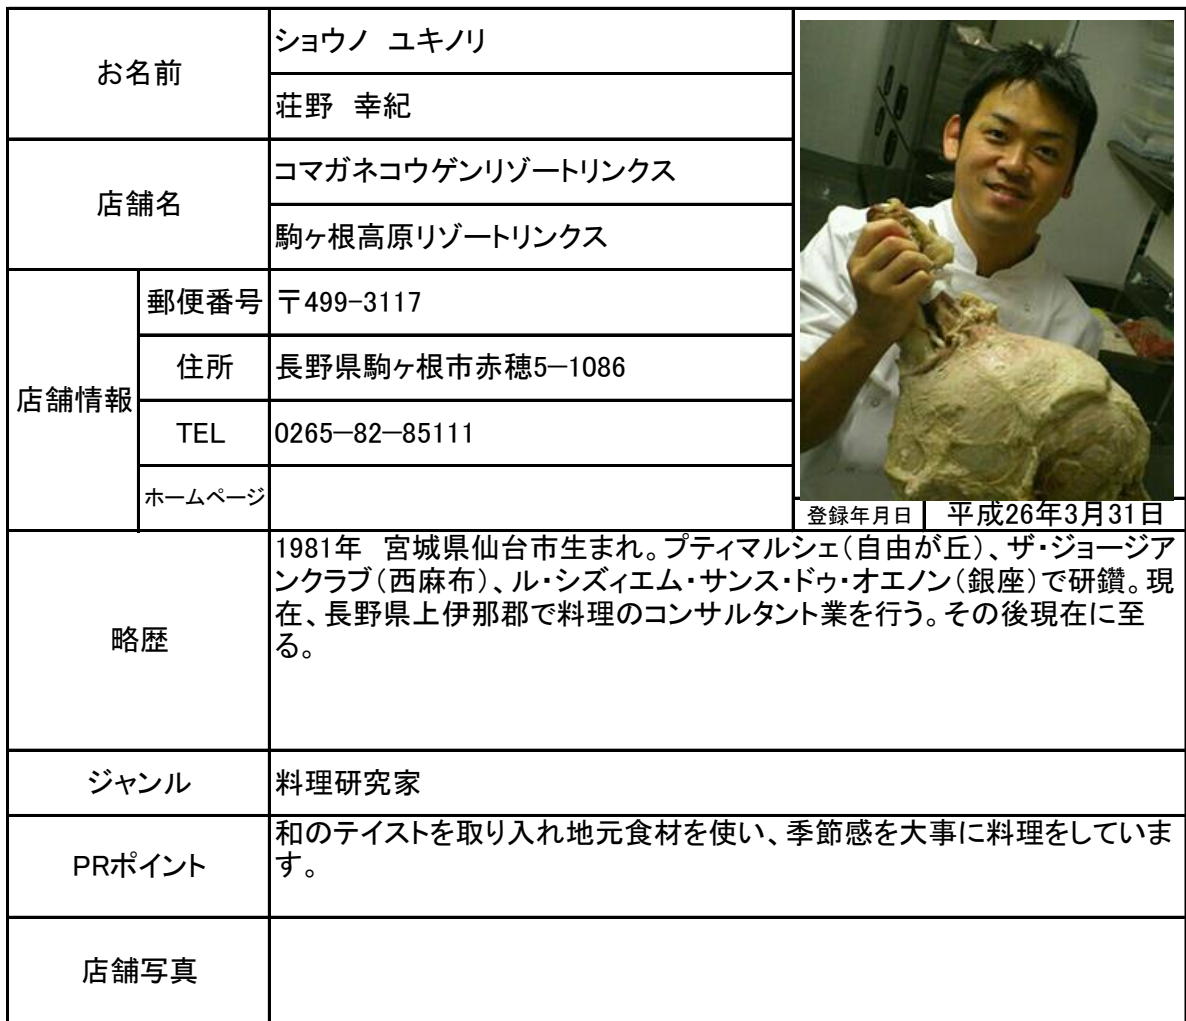 お名前
ショウノ　ユキノリ
荘野　幸紀
店舗名
コマガネコウゲンリゾートリンクス
駒ヶ根高原リゾートリンクス
店舗情報
郵便番号
〒499-3117
住所
長野県駒ヶ根市赤穂5―1086
TEL
0265―82―85111
ホームページ
登録年月日
平成26年3月31日
略歴
1981年　宮城県仙台市生まれ。プティマルシェ（自由が丘）、ザ・ジョージア
ンクラブ（西麻布）、ル・シズィエム・サンス・ドゥ・オエノン（銀座）で研鑽。現
在、長野県上伊那郡で料理のコンサルタント業を行う。その後現在に至
る。
ジャンル
料理研究家
PRポイント
和のテイストを取り入れ地元食材を使い、季節感を大事に料理をしていま
す。
店舗写真